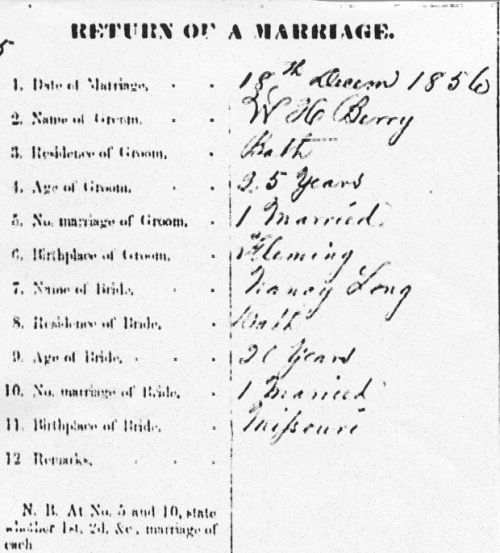 5
RETURN OF A MARRIAGE.
1. Date of Marriage, 18th Decem 1856
2. Name of Groom, W H Berry
3. Residence of Groom, Bath
4. Age of Groom, 25 Years
5. No. marriage of Groom, 1 Married
6. Birthplace of Groom, Fleming
7. Name of Bride, Nancy Long
8. Residence of Bride, Bath
9. Age of Bride, Years
10. No. marriage of Bride, 1 Married
11. Birthplace of Bride, Missouri
12 Remarks,
N. B. At No. 5 and 10, state
whether 1st, 2d, &c, marriage of
each